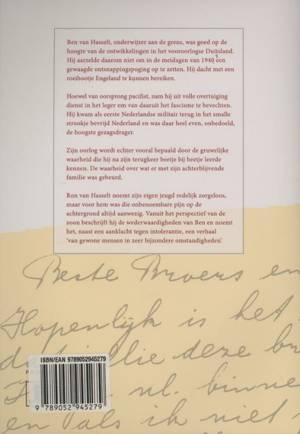 Ben van Hasselt, onderwijzer aan de grens, was goed op de
hoogte van de ontwikkelingen in het vooroorlogse Duitsland.
Hij aarzelde daarom niet om in de meidagen van 1940 een
gewaagde ontsnappingspoging op te zetten. Hij dacht met een
roeibootje Engeland te kunnen bereiken.
Hoewel van oorsprong pacifist, nam hij uit volle overtuiging
dienst in het leger om van daaruit het fascisme te bevechten.
Hij kwam als eerste Nederlandse militair terug in het smalle
strookje bevrijd Nederland en was daar heel even, onbedoeld,
de hoogste gezagsdrager.
Zijn oorlog wordt echter vooral bepaald door de gruwelijke
waarheid die hij na zijn terugkeer beetje bij beetje leerde
kennen. De waarheid over wat er met zijn achterblijvende
familie was gebeurd.
Ron van Hasselt noemt zijn eigen jeugd redelijk zorgeloos,
maar voor hem was die onbenoembare pijn op de
achtergrond altijd aanwezig. Vanuit het perspectief van de
zoon beschrijft hij de wederwaardigheden van Ben en noemt
het, naast een aanklacht tegen intolerantie, een verhaal
'van gewone mensen in zeer bijzondere omstandigheden'
Beste Broers en
Hopenlijk is het
jullie deze br
nl. binne
en Pals ik niet
ISBN/EAN 9789052945279
9 789052 945279